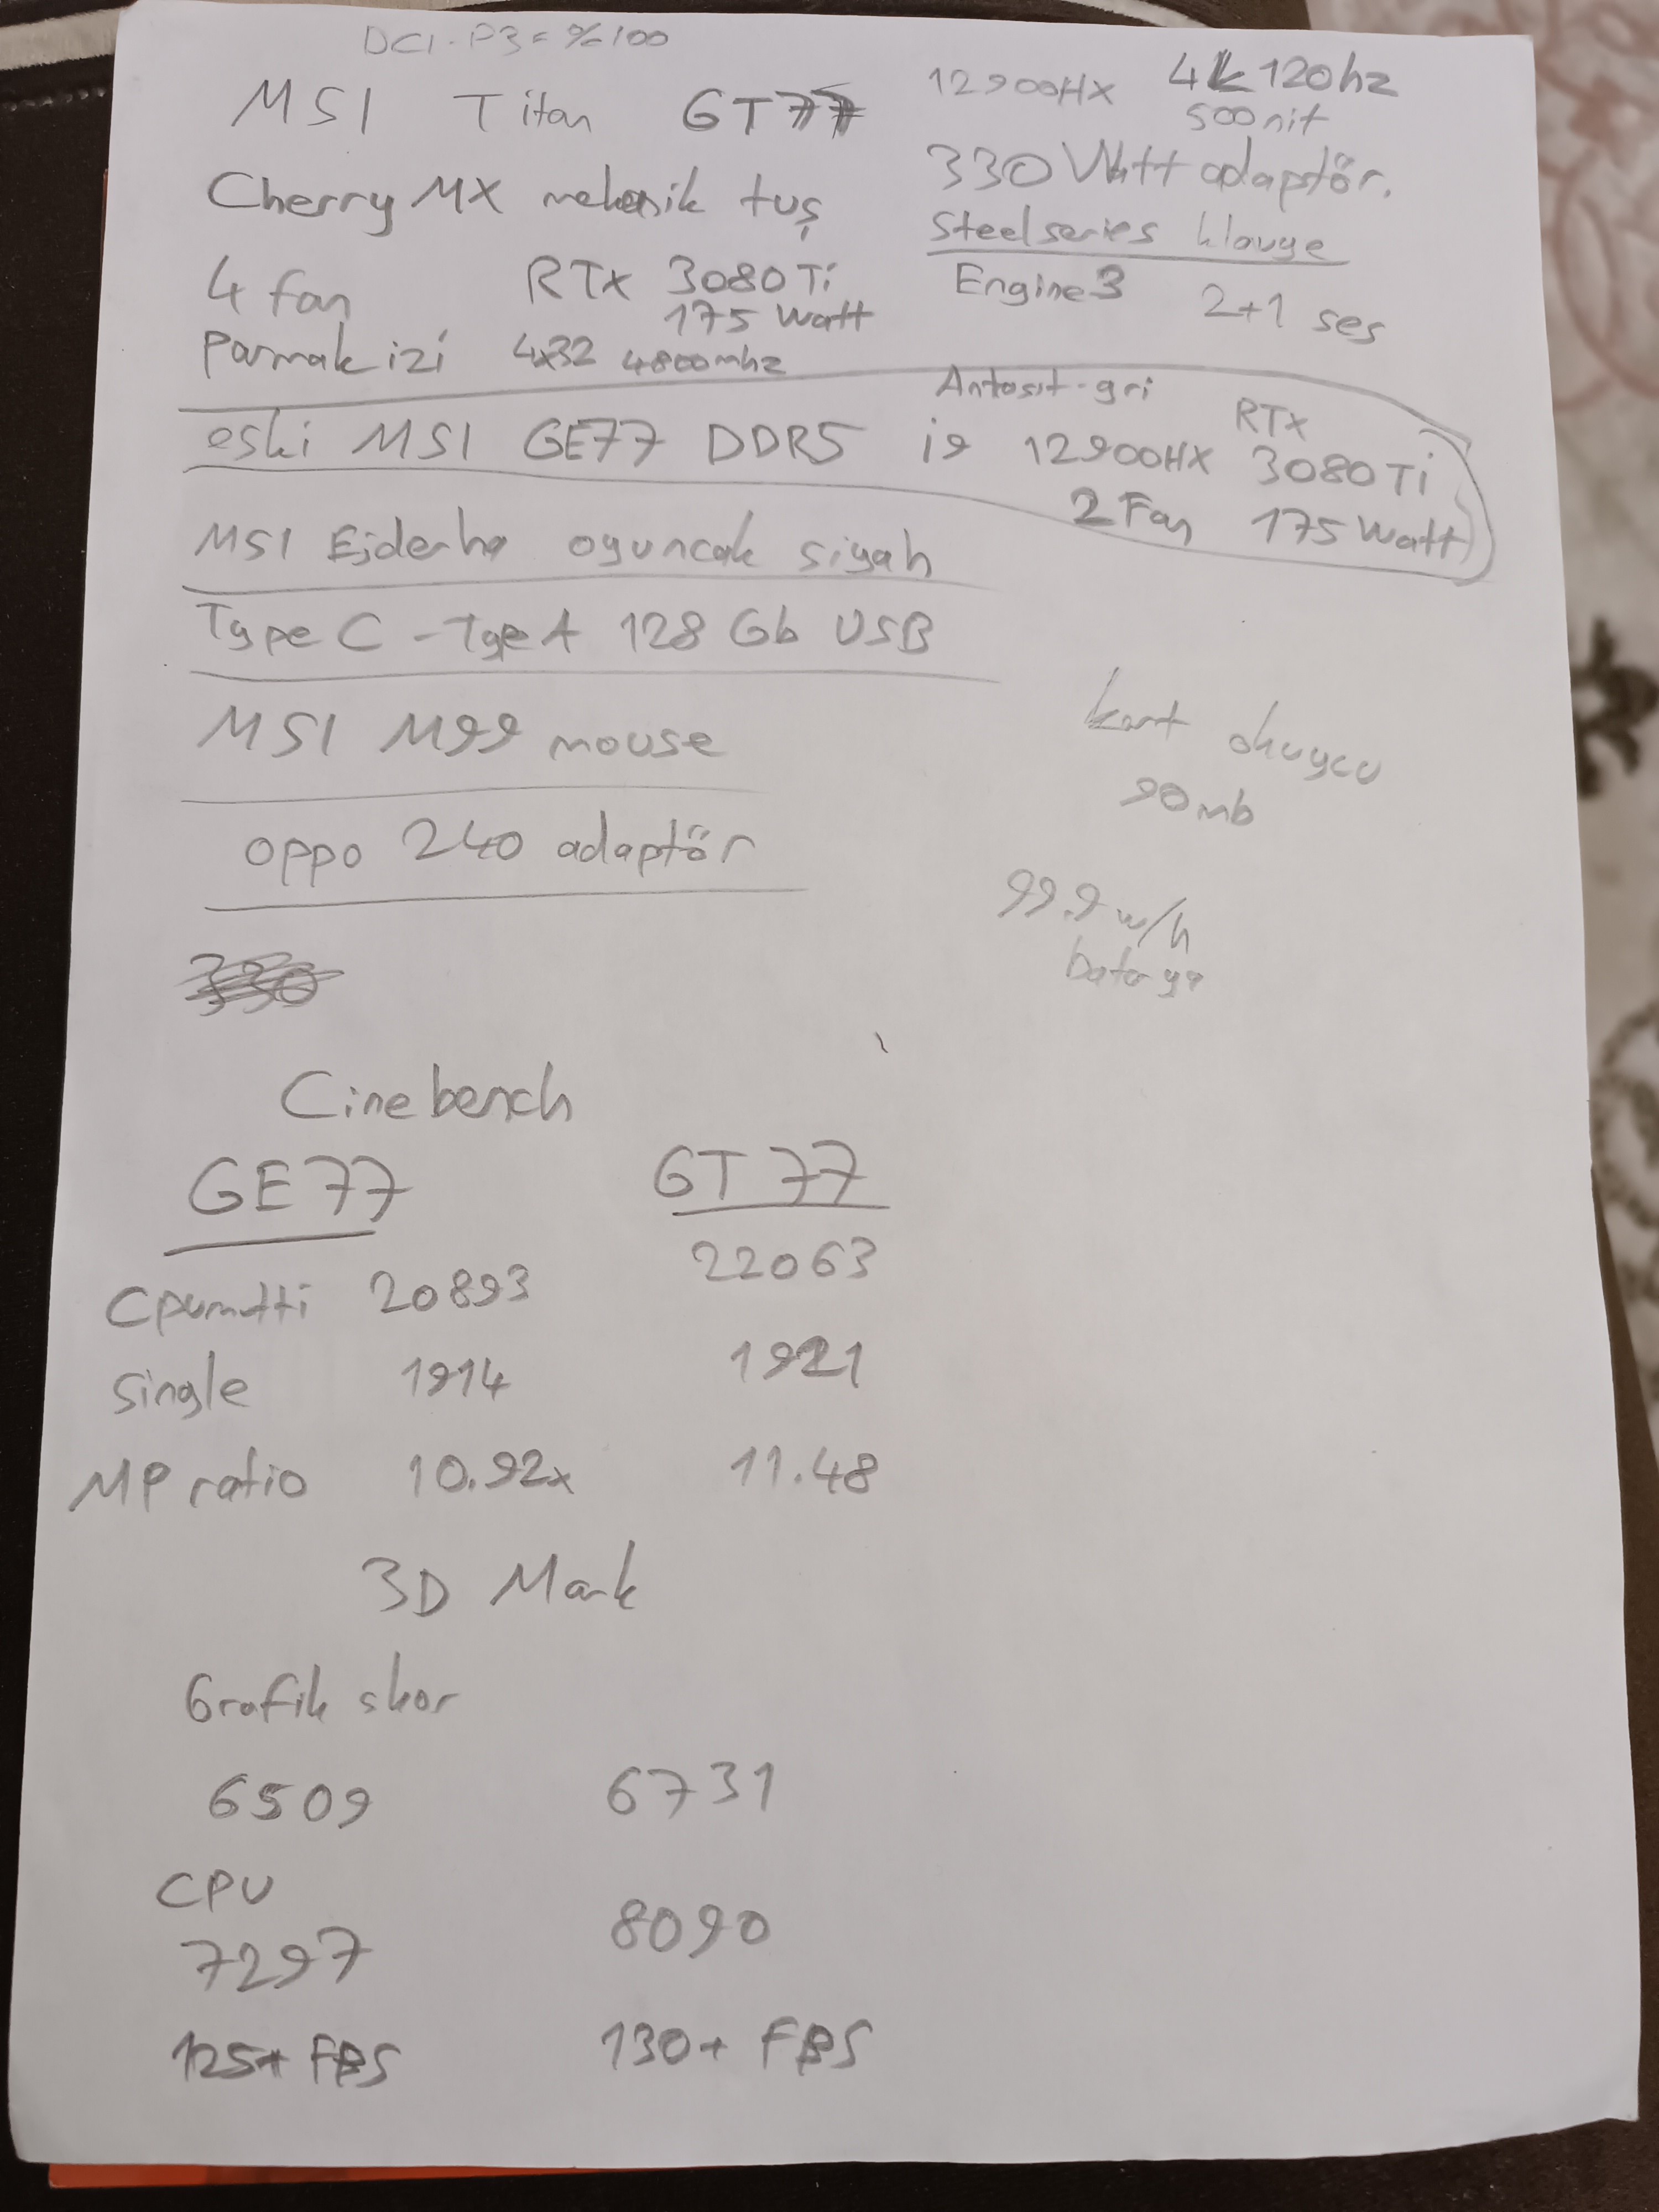 DCI-P3 = %100
MSI Titan GT77
12900HX 4k 120hz
500nit
Cherry MX mekanik tuş
330 Watt adaptör.
Steelseries klavye
4 fan RTX 3080 Ti
175 Watt
Engine3 2+1 ses
Parmak izi 4x32 4800mhz
Antasit-gri
eski MSI GE77 DDR5 i9 12900HX RTX 3080 Ti
2 Fan 175 Watt
MSI Ejderha oyuncak siyah
Type C - Type A 128 Gb USB
MSI M99 mouse
kart okuycu
90mb
oppo 240 adaptör
99.9 w/h
batarya
Cinebench
GE77 GT77
Cpu multi 20893 22063
single 1914 1921
MP ratio 10.92x 11.48
3D Mark
Grafik skor
6509 6731
CPU
7297 8090
125+ FPS 130+ FPS